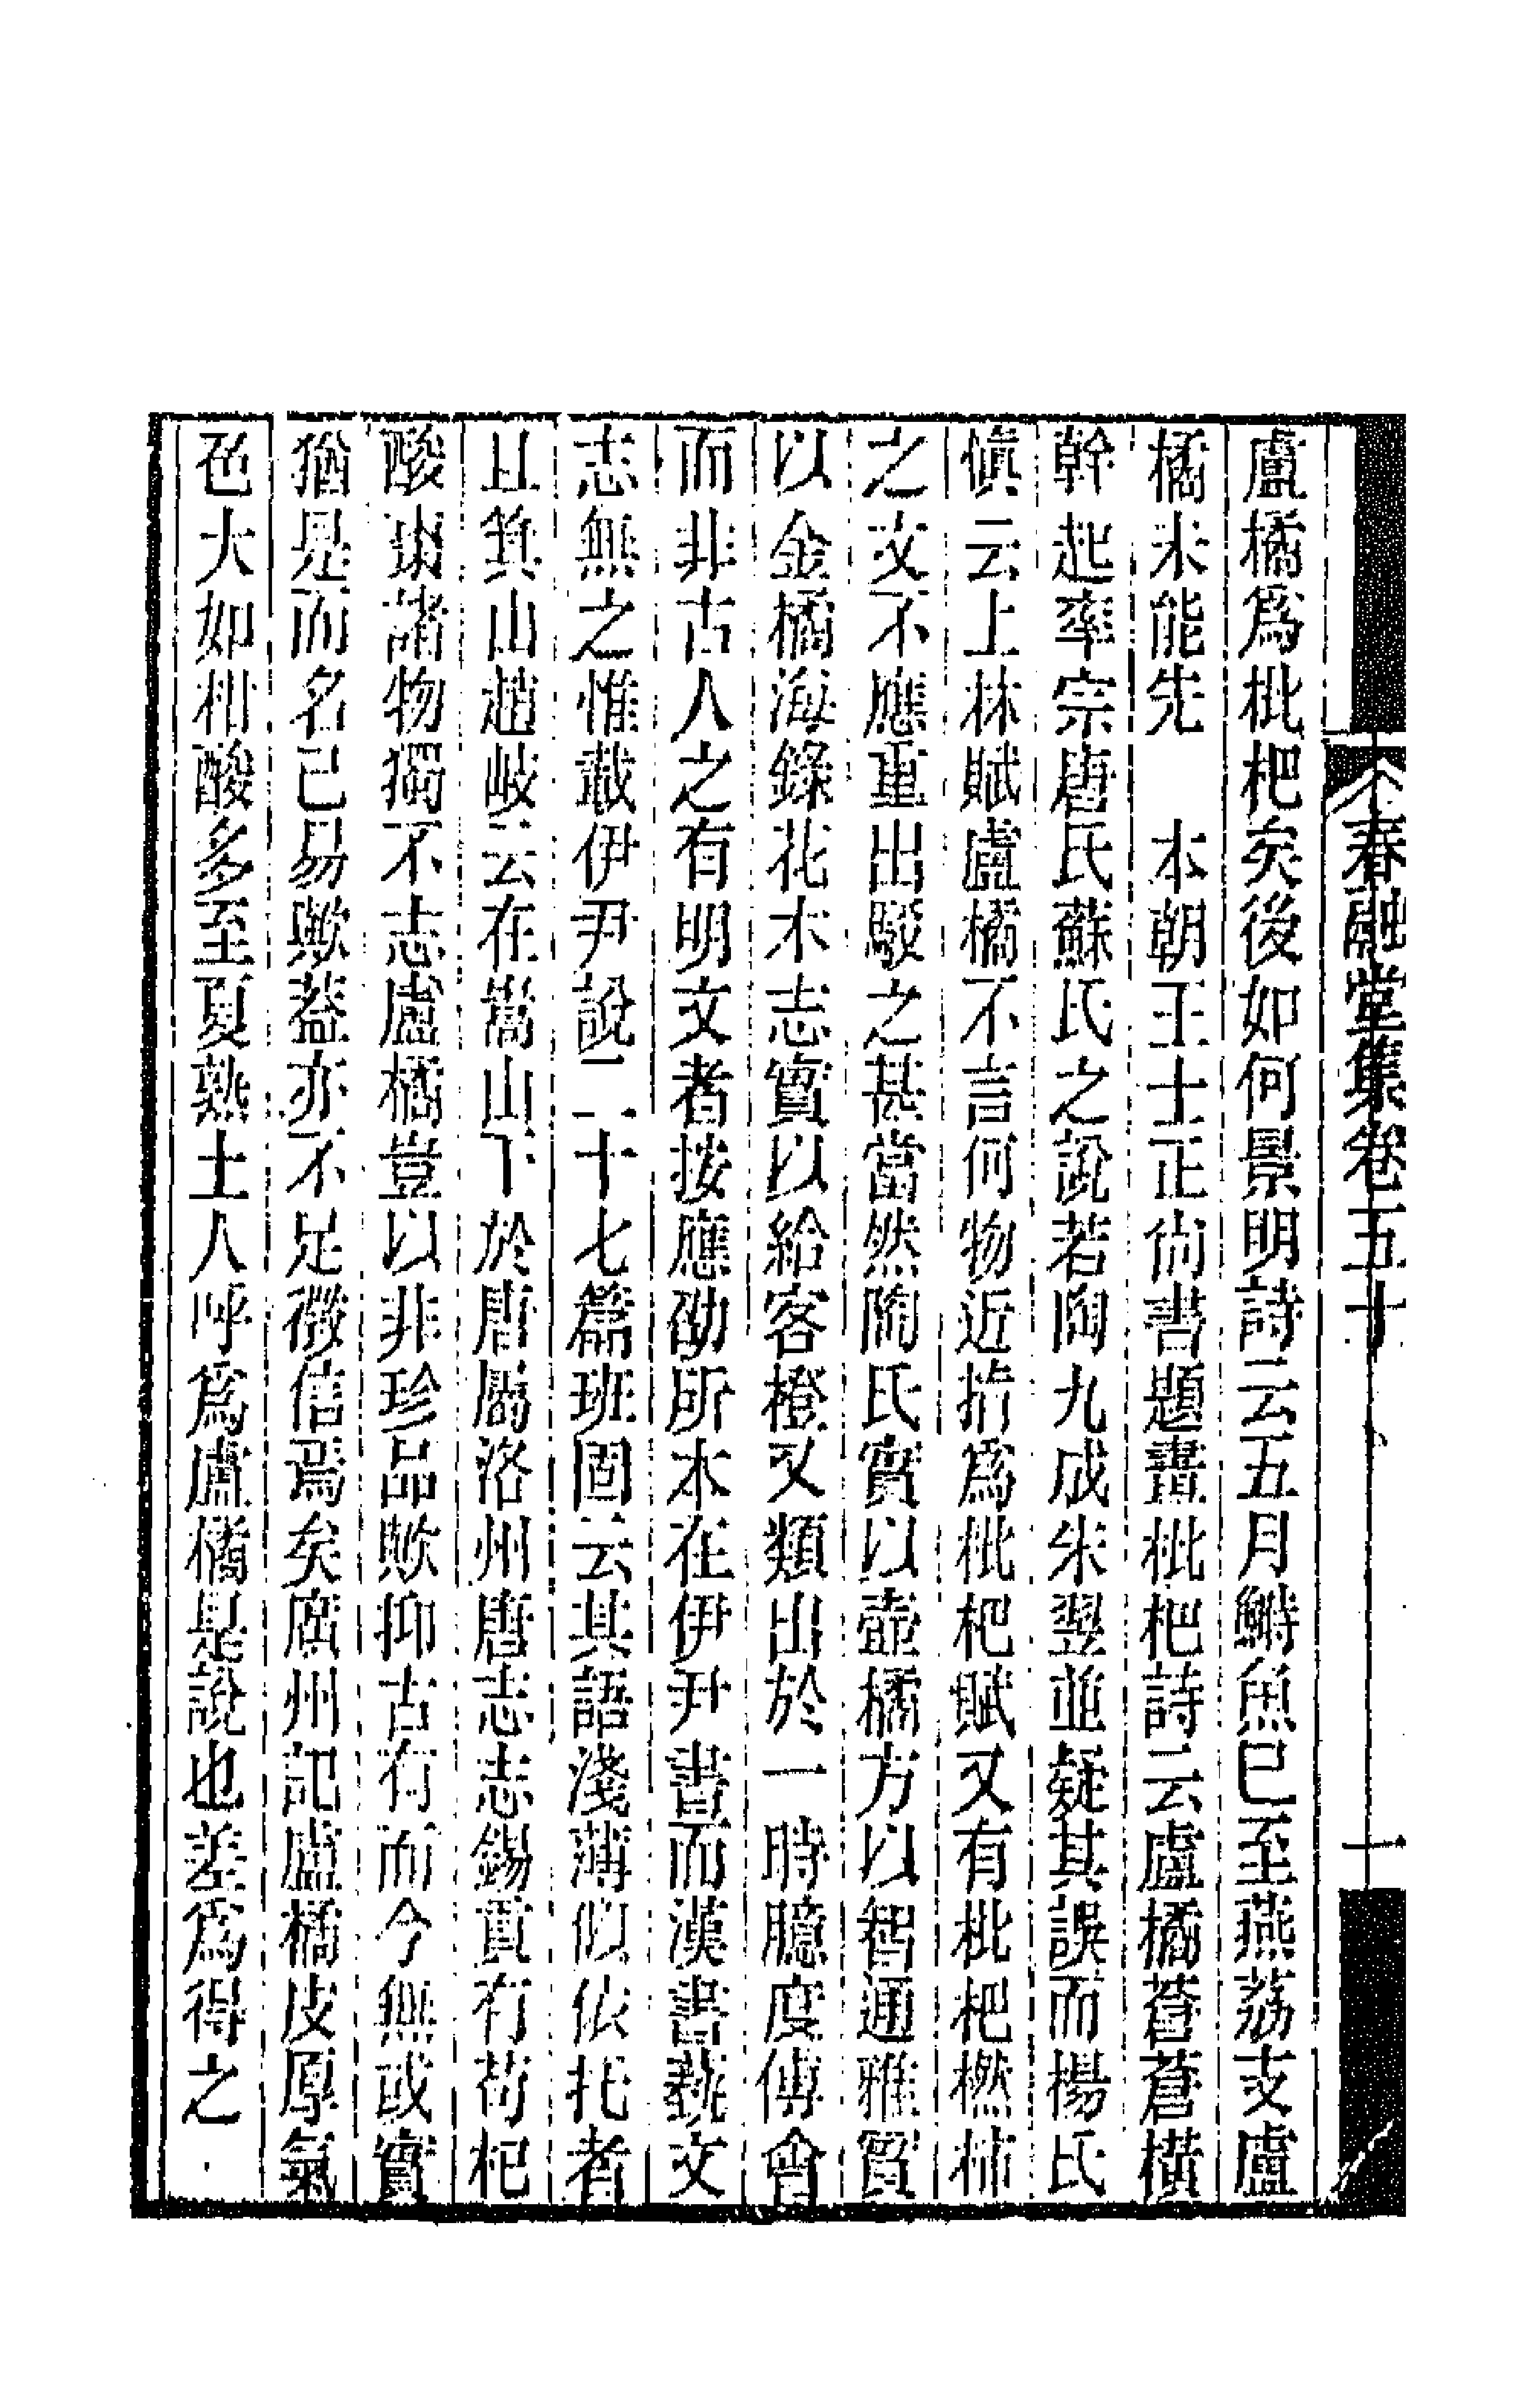 春融堂集卷五十
十
盧橘爲枇杷矣後如何景明詩云五月鰣魚已至燕荔支盧
橘未能先　本朝王士正尙書題畫枇杷詩云盧橘蒼蒼橫
幹起率宗唐氏蘇氏之說若陶九成朱翌並疑其誤而楊氏
愼云上林賦盧橘不言何物近指爲枇杷賦又有枇杷橪柿
之文不應重出駁之甚當然陶氏實以壺橘方以智通雅實
以金橘海錄花木志實以給客橙又類出於一時臆度傅會
而非古人之有明文者按應劭所本在伊尹書而漢書藝文
志無之惟載伊尹說二十七篇班固云其語淺薄似依托者
且箕山趙岐云在嵩山下於唐屬洛州唐志志錫貢有苟杞
酸棗諸物獨不志盧橘豈以非珍品歟抑古有而今無或實
猶是而名已易歟葢亦不足徵信焉矣廣州記盧橘皮厚氣
色大如柑酸多至夏熟土人呼爲盧橘是說也差爲得之